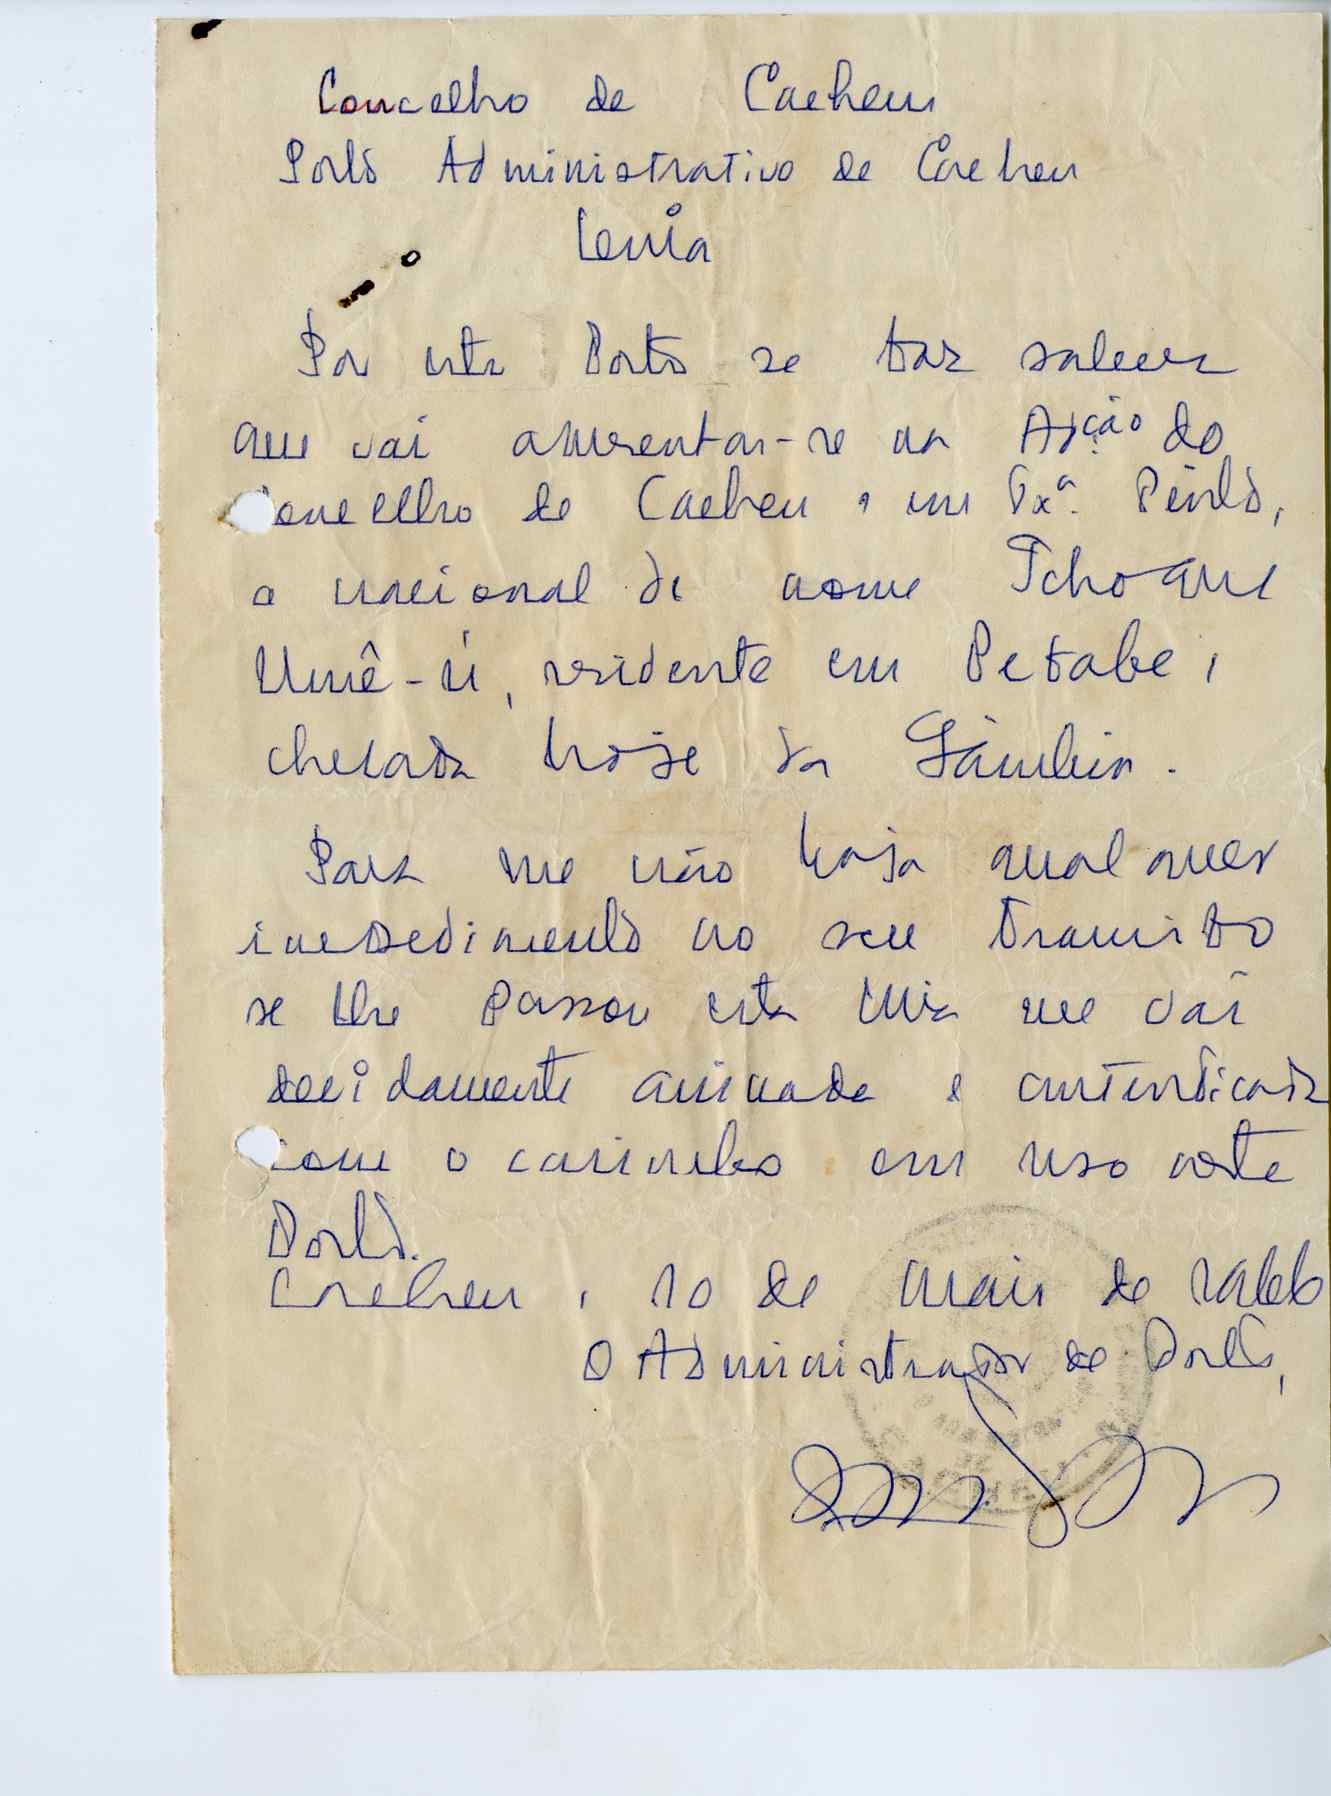 Concelho de Cacheu
Posto Administrativo de Cacheu
Guia
Por este Posto se faz saber
que vai apresentar-se na Adção do
Concelho de Cacheu, em Txª. Pinto,
a nacional de nome Tchoque
Umê-ú, residente em Petabe,
chegada hoje da Gâmbia.
Para que não haja qualquer
impedimento no seu transito
se lhe passou esta guia que vai
devidamente assinada e autenticada
com o carimbo em uso neste
Posto.
Cacheu, 10 de Maio de
O Administrador de Posto,
CACHEU